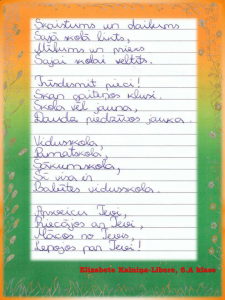 Skaistums un dailums
Šajā skolā lists,
Mīlums un prieks
Šajai skolai veltīts.
Trīsdesmit pieci!
Skan gaiteņos klusi.
Skola vēl jauna,
Daudz piedzīvos jauka.
Vidusskola,
Pamatskola,
Sākumskola,
Šī visa ir
Baložes vidusskola.
Apsveicu Tevi,
Priecājos ar Tevi,
Mācos no Tevis,
Lepojos par Tevi!
Elizabete Kalniņa-Libere, 6.A klase